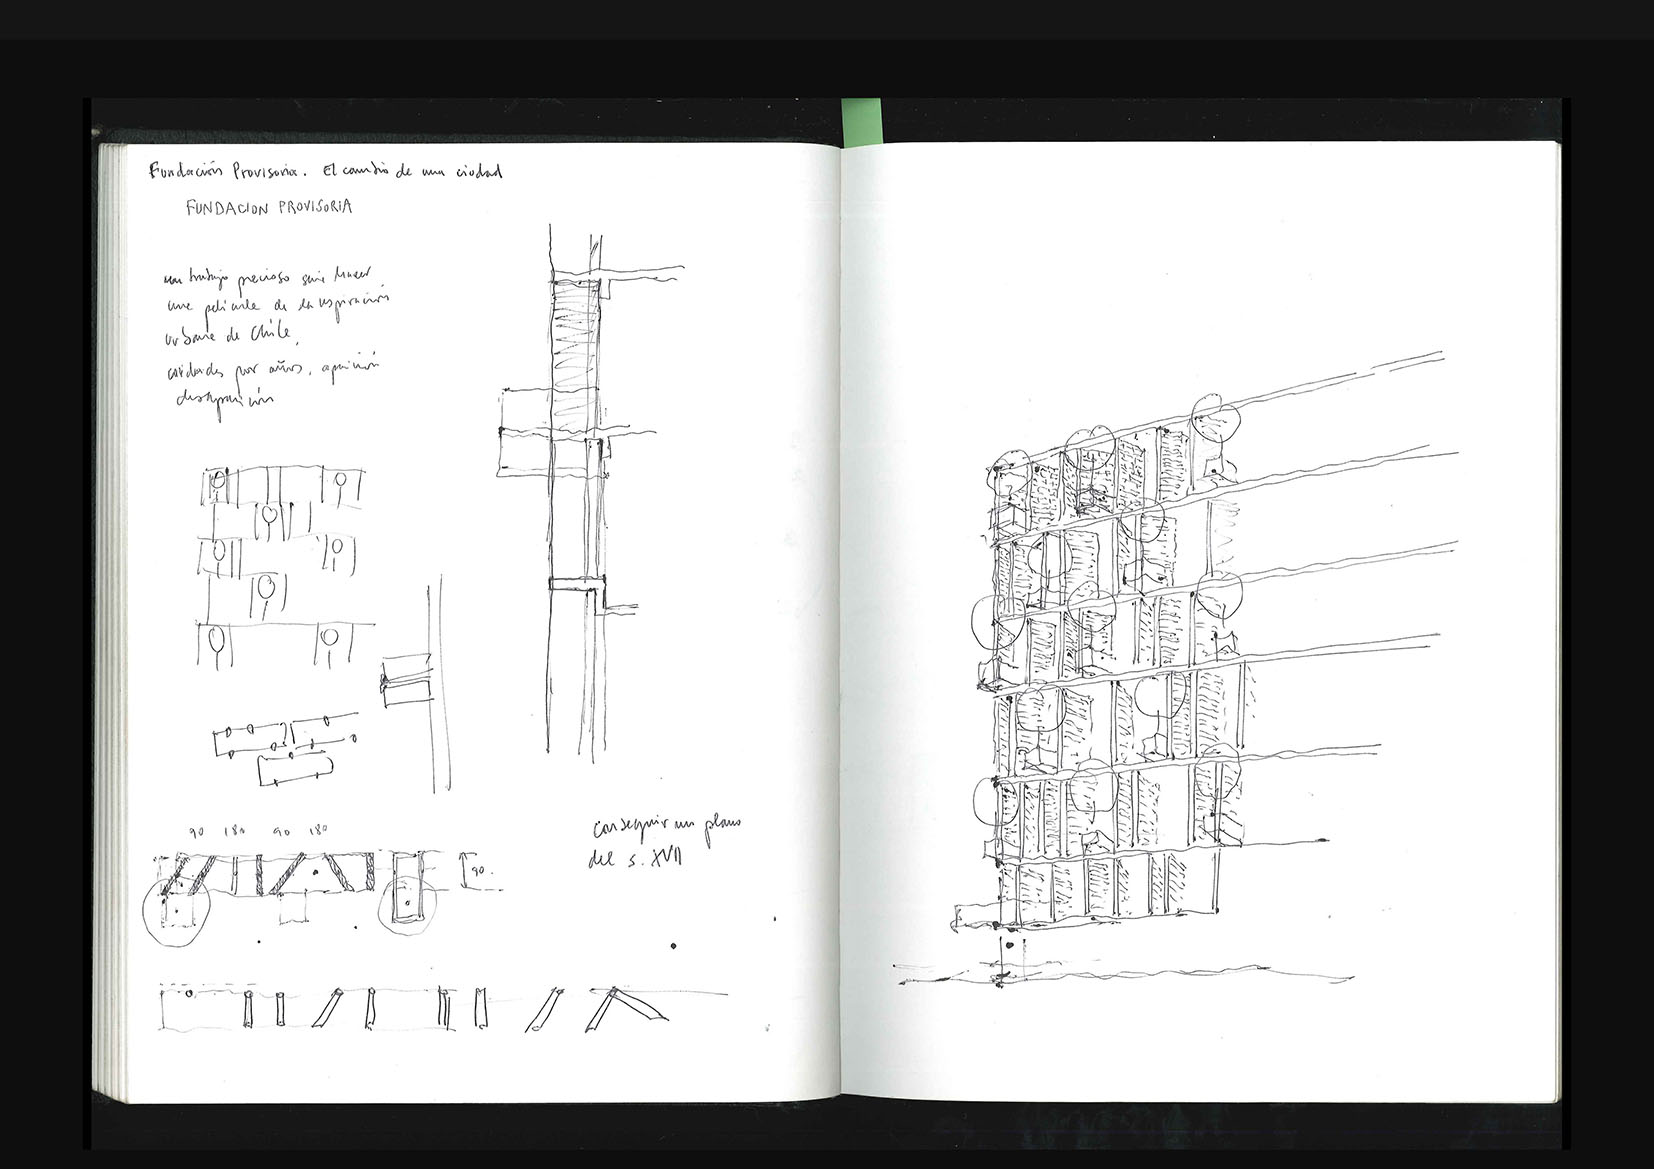 Fundación Provisoria. El cambio de una ciudad
FUNDACION PROVISORIA
un trabajo precioso sería hacer
una película de la respiración
urbana de Chile,
ciudades por años, aparición
desaparición
90 180 90 180
90.
conseguir un plano
del s. XVII